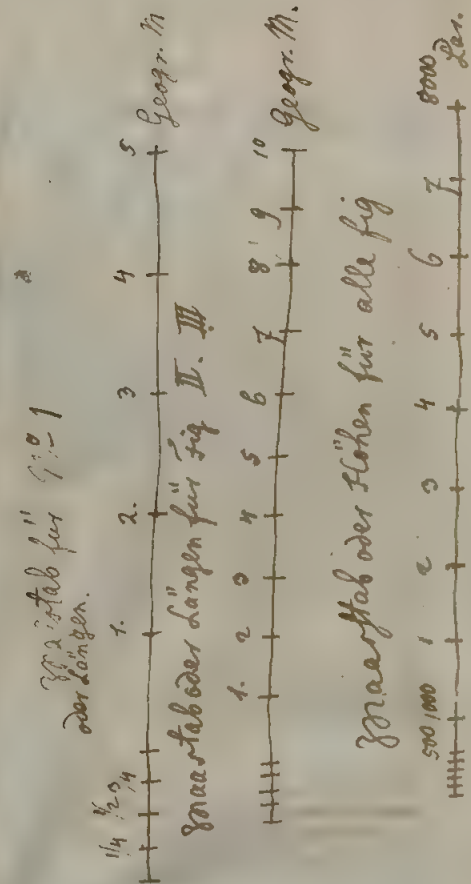 Maasstab für No 1
oder Längen.
1/4 1/2 3/4 1. 2. 3 4 5 Geogr. M
Maasstab oder Längen für Fig II. III
1. 2 3 4 5 6 7 8 9 10 Geogr. M.
Maasstab oder Höhen für alle fig
500 1000 1 2 3 4 5 6 7 8000